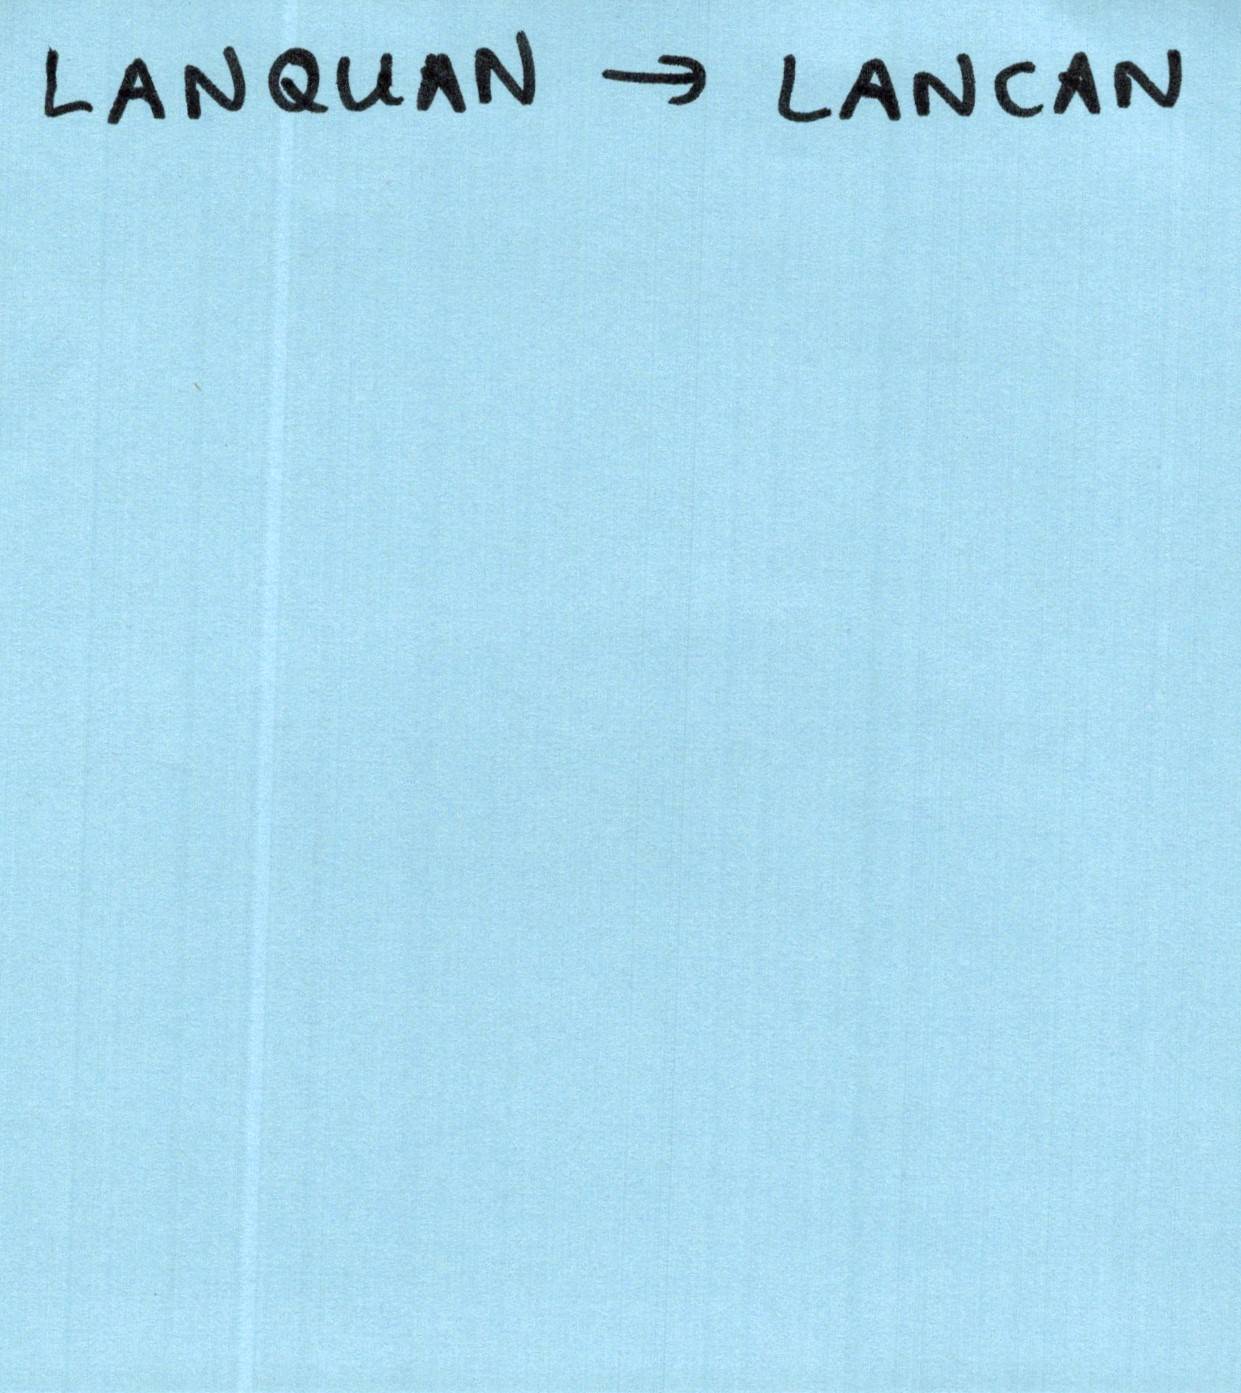 LANQUAN → LANCAN